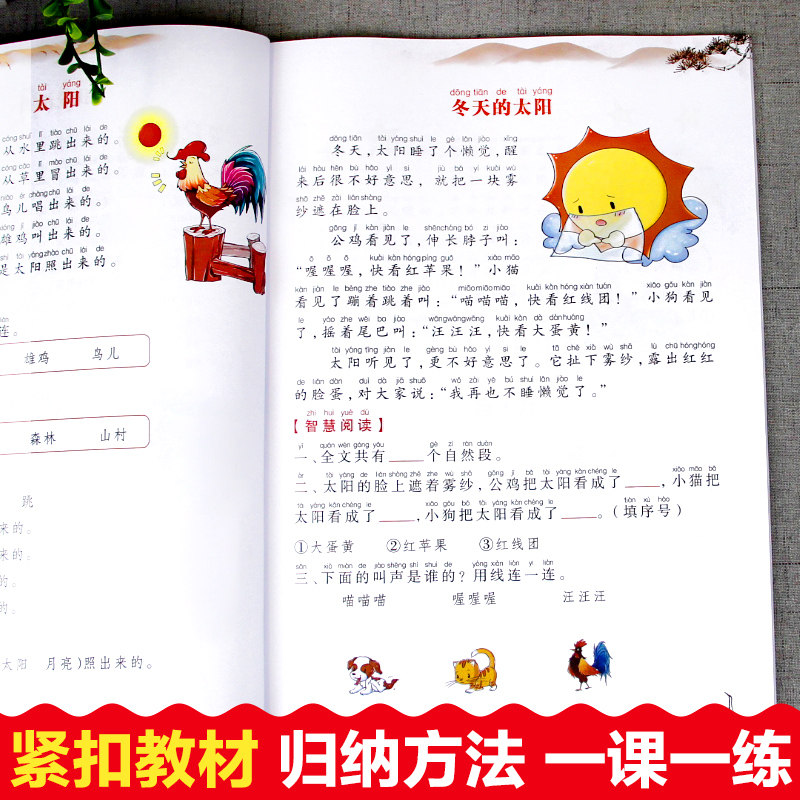 tài yáng
太 阳
从水里跳出来的。
从草里冒出来的。
鸟儿唱出来的。
雄鸡叫出来的。
是太阳照出来的。
连。
雄鸡 鸟儿
森林 山村
跳
来的。
来的。
的。
的。
太阳 月亮)照出来的。
dōng tiān de tài yáng
冬天的太阳
冬天,太阳睡了个懒觉,醒
来后很不好意思,就把一块雾
纱遮在脸上。
公鸡看见了,伸长脖子叫:
“喔喔喔,快看红苹果!”小猫
看见了蹦着跳着叫:“喵喵喵,快看红线团!”小狗看见
了,摇着尾巴叫:“汪汪汪,快看大蛋黄!”
太阳听见了,更不好意思了。它扯下雾纱,露出红红
的脸蛋,对大家说:“我再也不睡懒觉了。”
zhì huì yuè dú
【智慧阅读】
一、全文共有____个自然段。
二、太阳的脸上遮着雾纱,公鸡把太阳看成了____,小猫把
太阳看成了____,小狗把太阳看成了____。(填序号)
①大蛋黄 ②红苹果 ③红线团
三、下面的叫声是谁的?用线连一连。
喵喵喵 喔喔喔 汪汪汪
紧扣教材 归纳方法 一课一练